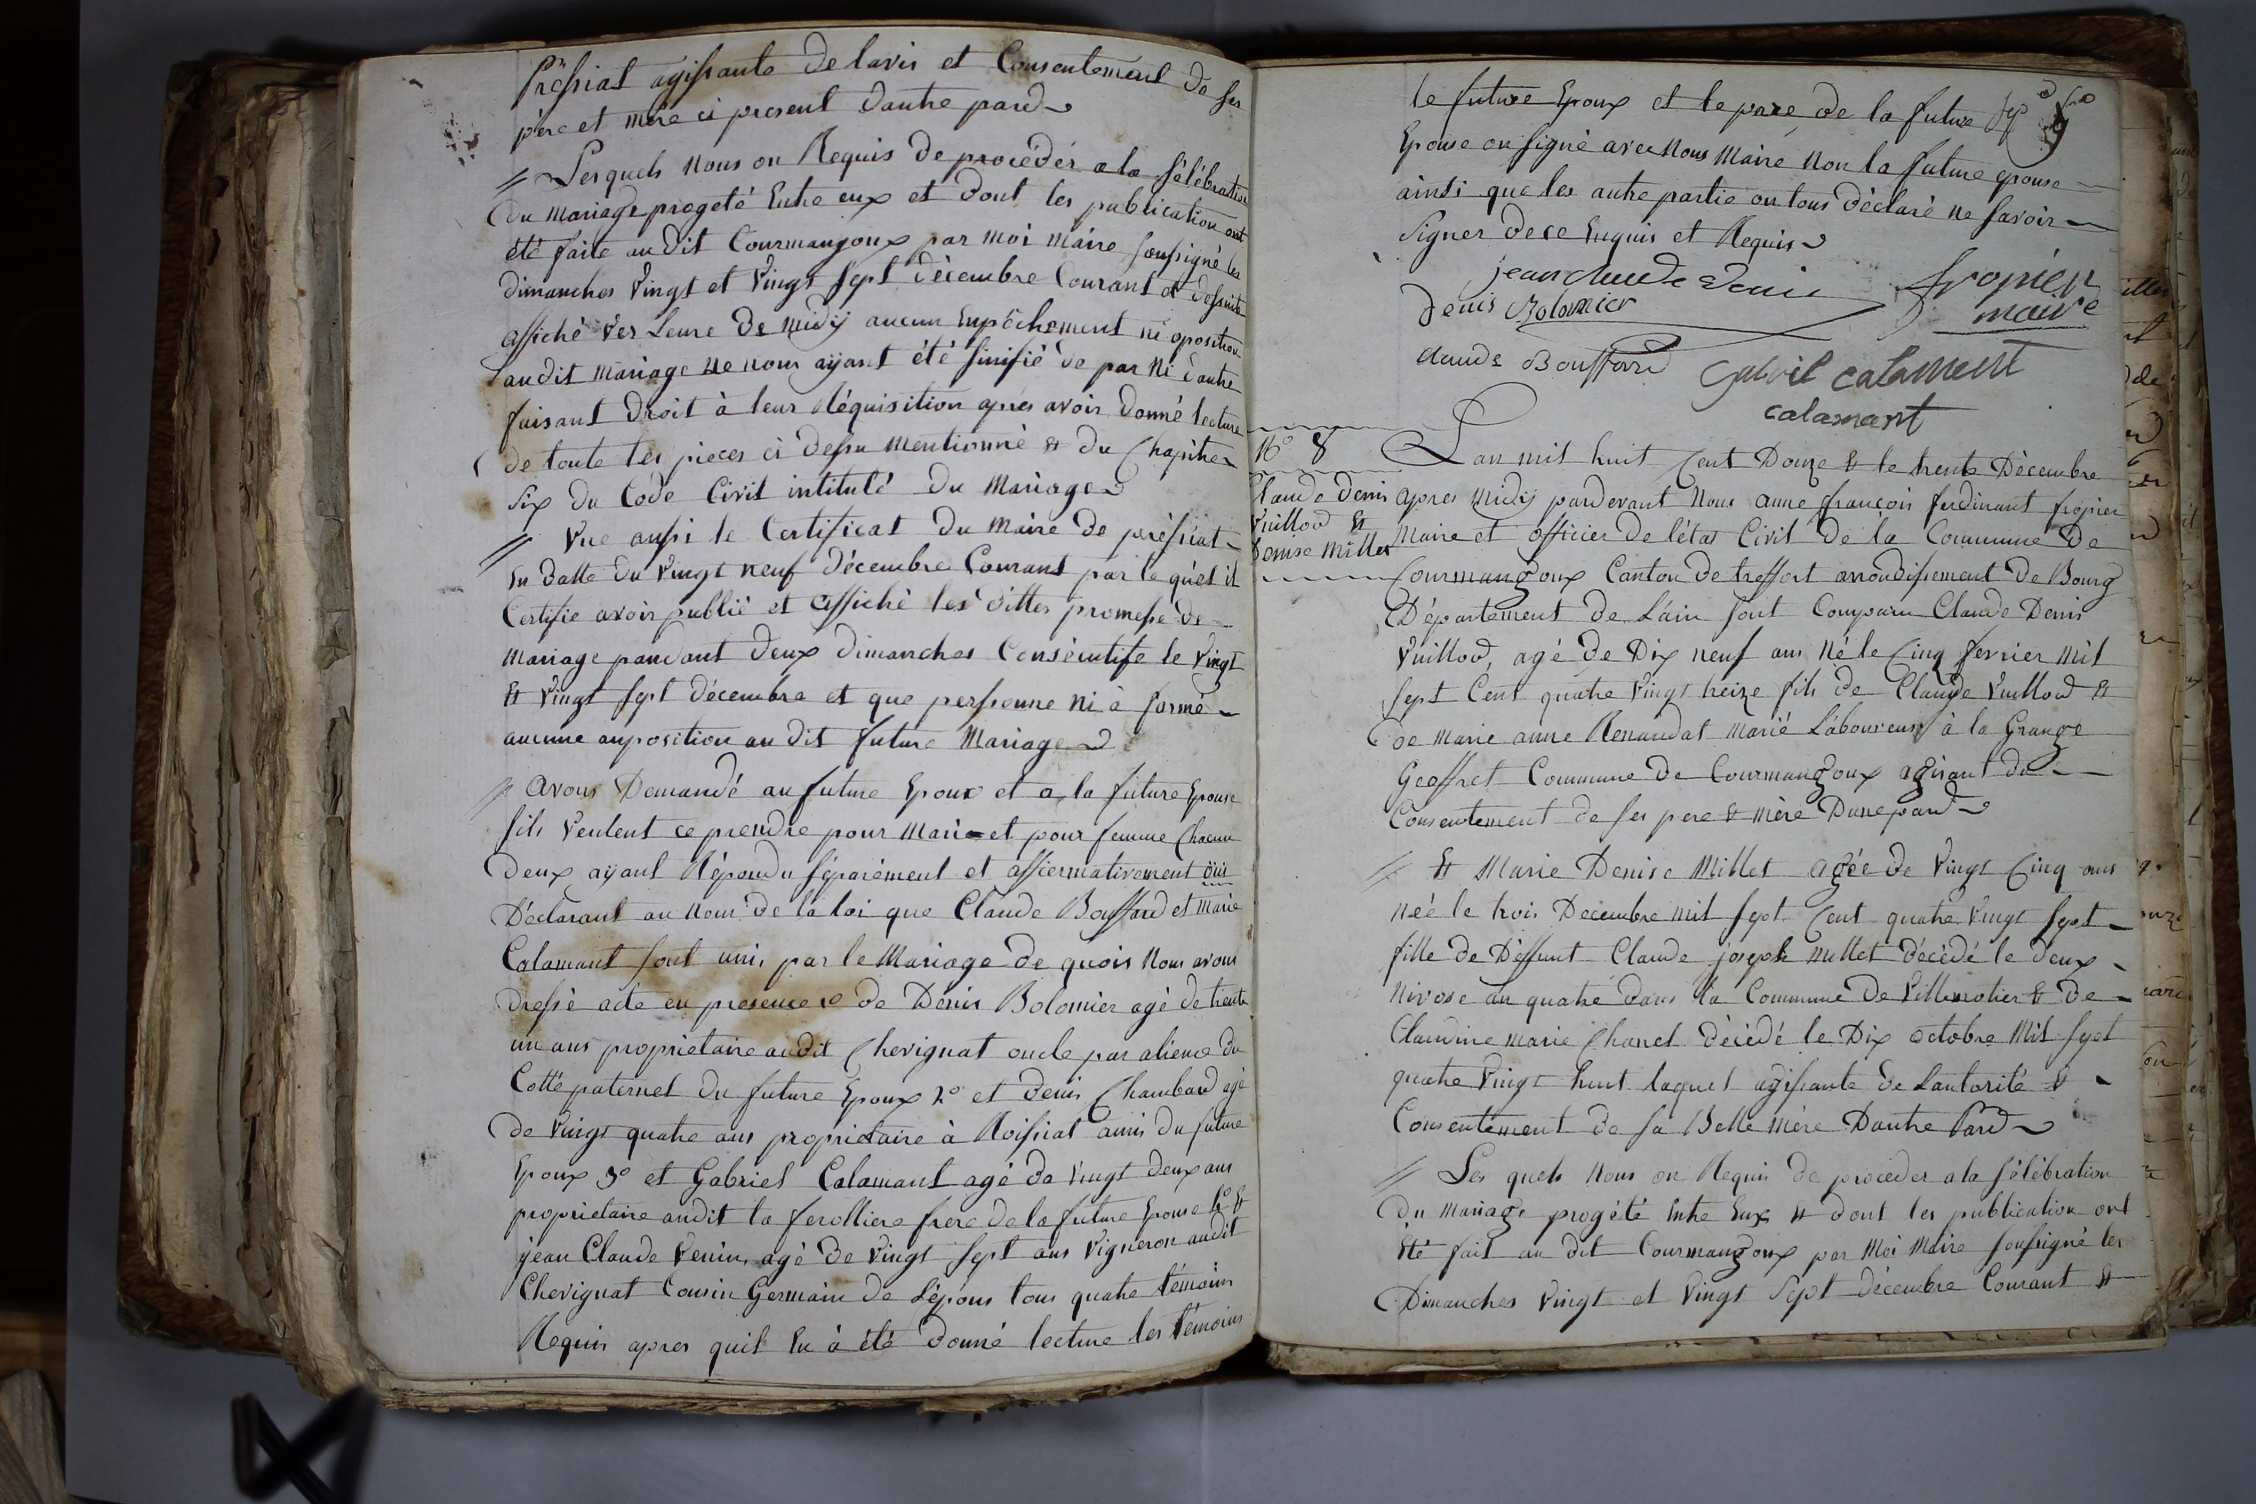 Préssiat agissante de lavis et Consentement de ses
père et mère ci present dautre pard
// Lesquels nous on Requis de procédér a la Sélébration
du mariage progeté Entre eux et dont les publication ont
été faite audit Courmangoux par moi maire soussigné les
dimanches Vingt et Vingt sept décembre Courant et dessuite
affiché Ver Leure de midij aucun Enpêchement ni oposition
audit mariage ne nous aÿant été sinifié de par ni dautre
faisant droit à leur Réquisition apres avoir donné lecture
de toute les pieces ci dessu mentionné et du Chapitre
Six du Code Civil intitulé du Mariage
// Vue aussi le Certificat du maire de préssiat
En datte du Vingt neuf décembre Courant par le quel il
Certifie avoir publié et affiché les dittes promesse de
mariage pandant deux dimanches Consécutife le Vingt
et Vingt sept décembre et que perssonne ni à formé
aucune anposition au dit future Mariage
// avons Demandé au future Epoux et a la future Epouse
sils Veulent ce prendre pour mari et pour femme Chacun
deux aÿant Répondu séparément et affiermativement oüi
Déclarant au nom de la loi que Claude Bouffard et marie
Calamant sont unis par le Mariage de quois nous avons
dressé acte en presence de Dénis Bolomier agé de trente
un ans propriétaire audit Chevignat oncle par alience du
Cotté paternel du future Epoux 2° et denis Chambard agé
de Vingt quatre ans propriétaire à Roissiat amis du future
Epoux 3° et Gabriel Calamant agé de Vingt deux ans
propriétaire audit la ferolliere frere de la future Epouse 4° et
jean Claude Venin agé de Vingt sept ans Vigneron audit
Chevignat Cousin Germain de Lépous tous quatre témoins
Requis apres quil En à été donné lecture les témoins
le future Epoux et le pere de la future
Epouse on signé avec nous maire non la future epouse
ainsi que les autre partie on tous déclaré ne savoir
signer dece Enquis et Requis
jean claude Venin
fropier
maire
denis Bolomier
claude Bouffard
Gabriel calament
calamant
N° 8
Claude denis
Vuillod et
denise Millet
Lan mil huit Cent Douze et le trente Décembre
apres midij pardevant nous anne françois ferdinant fropier
Maire et officier de létat Civil de la Commune de
Courmangoux Canton de treffort arrondissement de Bourg
Département de Lain sont Comparu Claude Denis
Vuillod, agé de Dix neuf ans né le Cinq fevrier mil
sept Cent quatre Vingt treize fils de Claude Vuillod et
de marie anne Renaudat marié Laboureur à la Grange
Geoffret Commune de Courmangoux agisant du
Consentement de ses pere et mère Dune pard
// Et Marie Denise Millet agée de Vingt Cinq ans
née le trois Decembre mil sept Cent quatre Vingt sept
fille de Déffunt Claude joseph millet décédé le deux
nivose an quatre dans la Commune de Villemotier et de
Claudine marie Chanel décédé le Dix octobre mil sept
quatre Vingt huit laquel agissante de Lautorité et
Consentement de sa Belle mère Dautre Pard
// Les quels nous on Requis de procéder a la sélébration
du mariage progété Entre Eux et dont les publication ont
Eté fait au dit Courmangoux par moi maire soussigné les
Dimanches Vingt et Vingt sept décembre Courant et